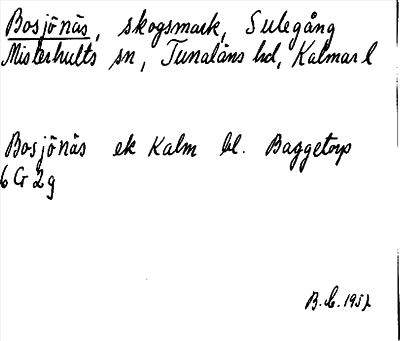 Bosjönäs, skogsmark, Sulegång
Misterhults sn, Tunaläns hd, Kalmar l
Bosjönäs ek Kalm bl. Baggetorp
6 G 2 g
B. 1957